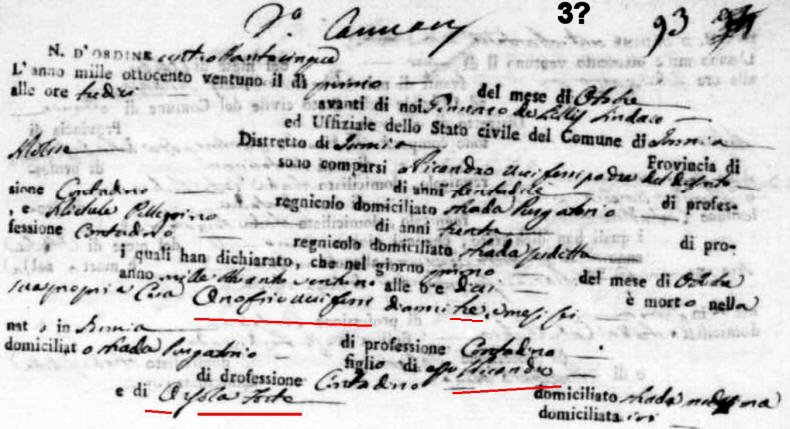 3?
93
N. D'ORDINE cento ottantacinque
L'anno mille ottocento ventuno il dì primo del mese di Ottobre
alle ore tredici avanti di noi Gennaro de Lellis Sindaco
ed Uffiziale dello Stato civile del Comune di Isernia
Distretto di Isernia Provincia di
Molise sono comparsi Nicandro padre del defonto
di anni
sione Contadino regnicolo domiciliato strada Purgatorio di profes-
, e Michele Pellegrino di anni trenta
fessione Contadino regnicolo domiciliato strada sudetta di pro-
i quali han dichiarato, che nel giorno primo del mese di Ottobre
anno mille ottocento ventuno alle ore dieci è morto nella
sua propria Casa Onofrio d'anni tre e mesi sei
nat o in Isernia di professione Contadino
domiciliat o strada Purgatorio figlio di Nicandro
di drofessione Contadino domiciliato strada
e di Orsola Forte domiciliata ivi